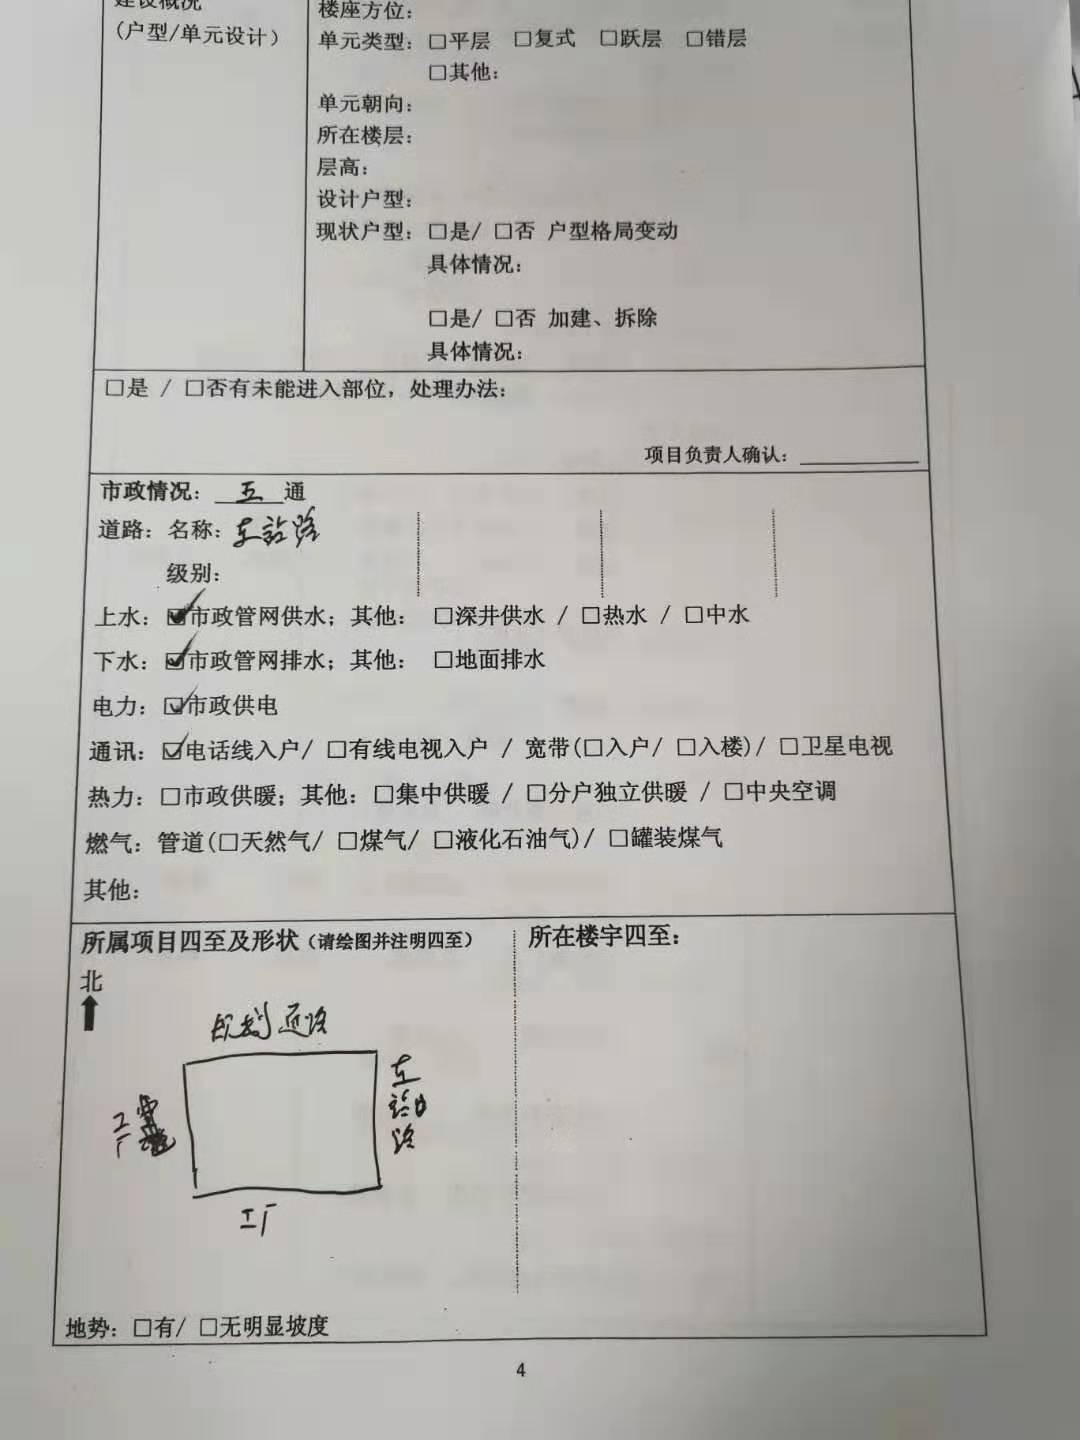 建设概况
(户型/单元设计)
楼座方位：
单元类型：□平层 □复式 □跃层 □错层
□其他：
单元朝向：
所在楼层：
层高：
设计户型：
现状户型：□是/ □否 户型格局变动
具体情况：
□是/ □否 加建、拆除
具体情况：
□是 / □否有未能进入部位，处理办法：
项目负责人确认：
市政情况：五通
道路：名称：车站路
级别：
上水：☑市政管网供水；其他： □深井供水 / □热水 / □中水
下水：☑市政管网排水；其他： □地面排水
电力：☑市政供电
通讯：☑电话线入户/ □有线电视入户 / 宽带(□入户/ □入楼)/ □卫星电视
热力：□市政供暖；其他：□集中供暖 / □分户独立供暖 / □中央空调
燃气：管道(□天然气/ □煤气/ □液化石油气)/ □罐装煤气
其他：
所属项目四至及形状（请绘图并注明四至）
所在楼宇四至：
北
规划道路
车站路
工厂
工厂
地势：□有/ □无明显坡度
4